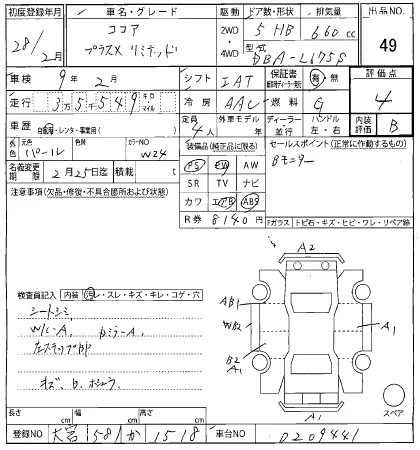 初度登録年月 車名・グレード 駆動 ドア数・形状 排気量 出品NO
28/2月 ココア プラスX リミテッド 2WD・4WD 5 HB 660cc 49
型式 DBA-L675S
車検 9年2月 シフト IAT 保証書 有 無 評価点
走行 3万5千549 キロ マイル 冷房 AAC 燃料 G 4
車歴 自家用・レンタ・事業用( ) 定員 外車モデル ディーラー ハンドル 内装評価 B
4人 年 並行 左・右
外色 元色 パール 色替 カラーNO W24
装備品(純正品に限る) セールスポイント(正常に作動するもの)
名義変更 2月25日迄 積載 t PS PW AW Bモニター
注意事項(欠品・修復・不具合箇所および状態) SR TV ナビ
カワ エアB ABS
R券 8140円
Fガラス トビ石・キズ・ヒビ・ワレ・リペア跡
A2
検査員記入 内装 汚レ・スレ・キズ・キレ・コゲ・穴
AB1
シートシミ
W/C-A.
WB2
A1
B2
A1
左ステップ
キズ.
スペア
A1
長さ cm 幅 cm 高さ cm
登録NO 大宮 581 か 1518 車台NO 0209441